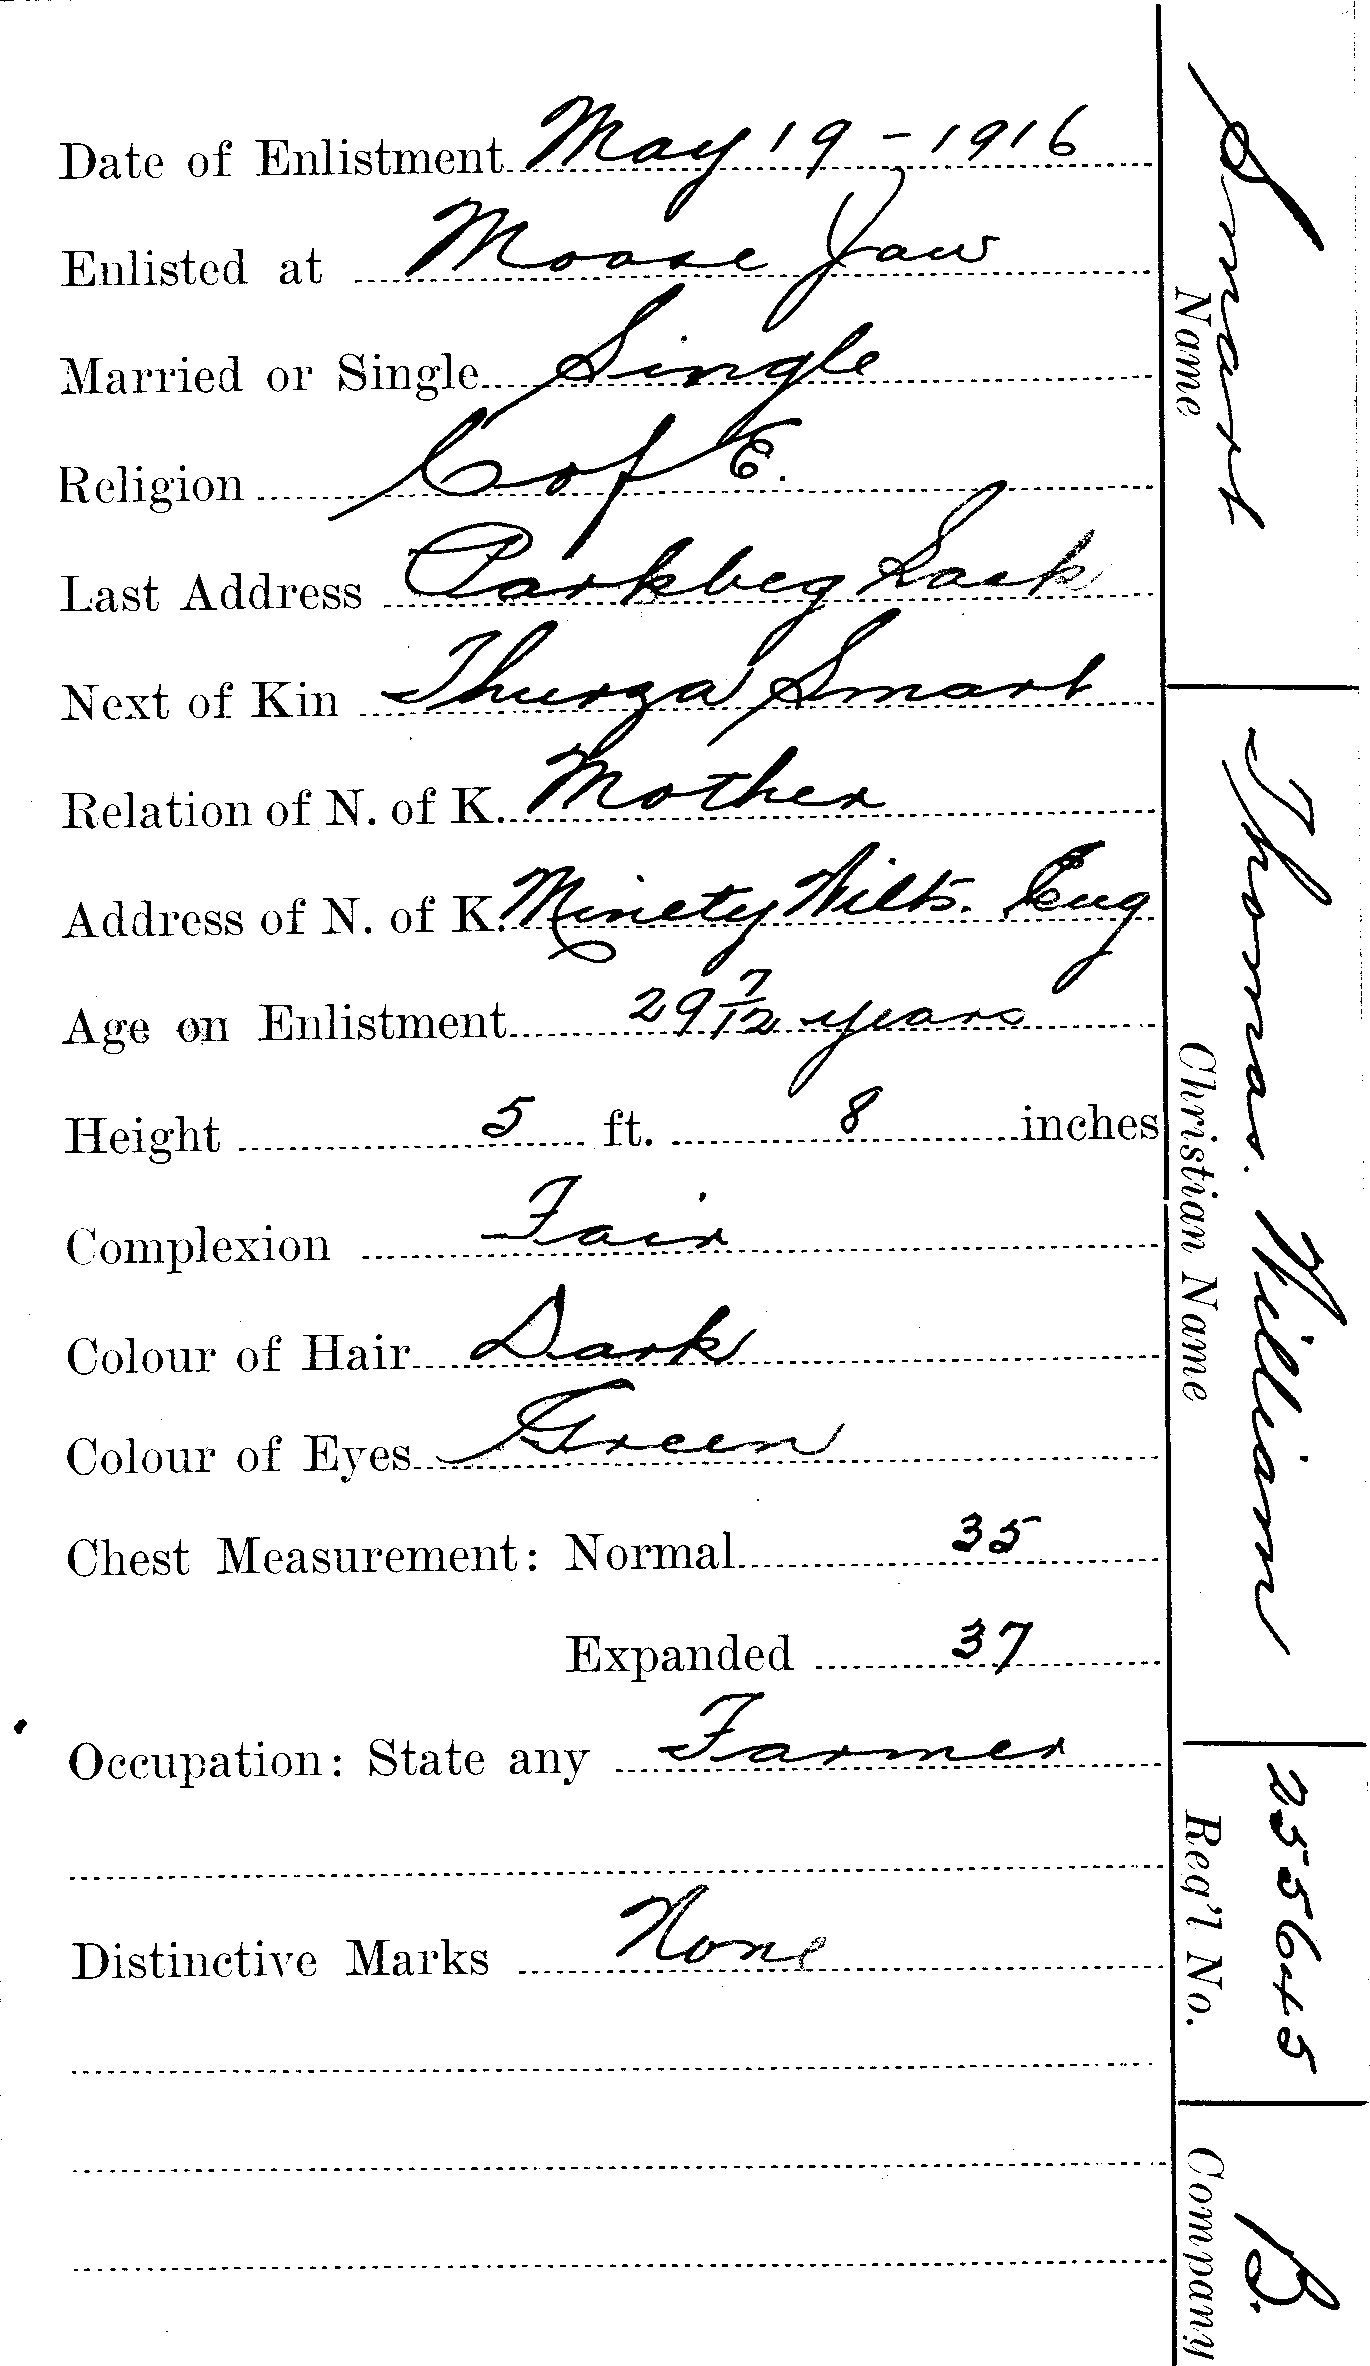 Date of Enlistment May 19 - 1916
Enlisted at Moose Jaw
Married or Single Single
Religion C of E.
Last Address Parkbeg Sask
Next of Kin Thurza Smart
Relation of N. of K. Mother
Address of N. of K. Minety Wilts. Eng
Age on Enlistment 29 7/12 years
Height 5 ft. 8 inches
Complexion Fair
Colour of Hair Dark
Colour of Eyes Green
Chest Measurement: Normal 35
Expanded 37
Occupation: State any Farmer
Distinctive Marks None
Smart
Name
Thomas. William
Christian Name
255645
Reg'l No.
B.
Company